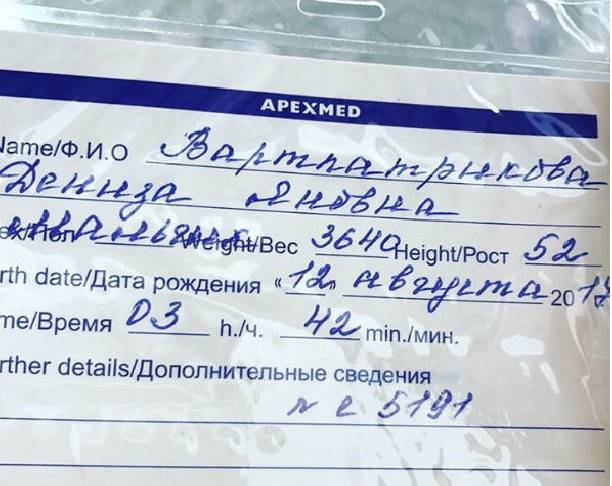 APEXMED
Name/Ф.И.О Вартпатрикова
Дениза Яновна
Sex/Пол мальчик Weight/Вес 3640 Height/Рост 52
rth date/Дата рождения «12» августа 201
me/Время 03 h./ч. 42 min./мин.
rther details/Дополнительные сведения
5191